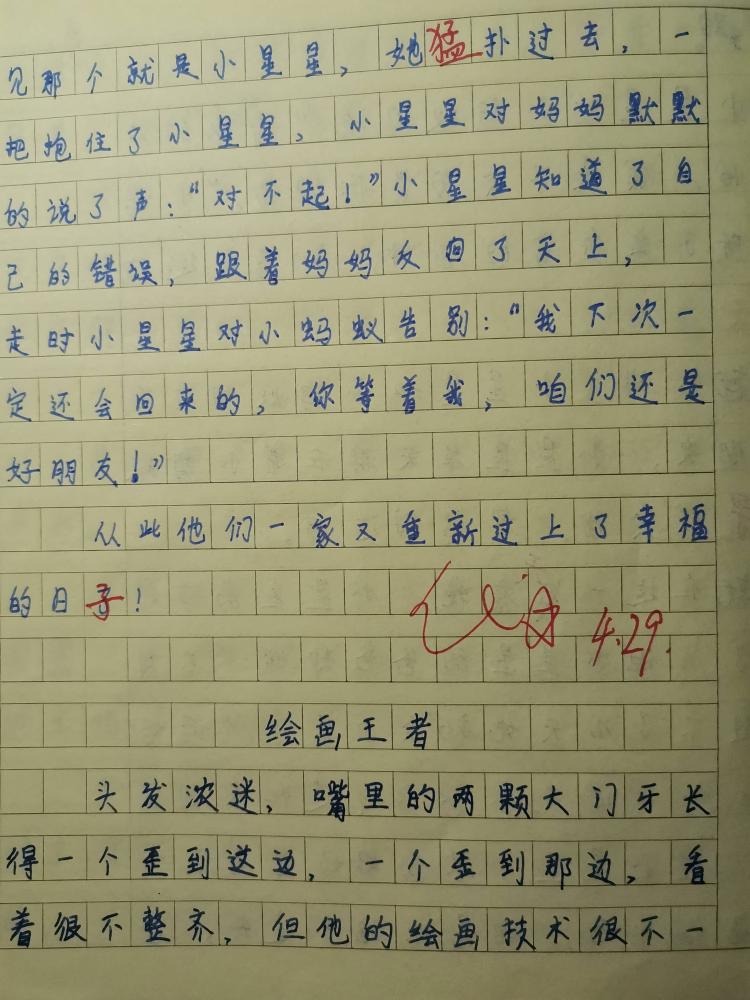 见那个就是小星星，她猛扑过去，一
把抱住了小星星，小星星对妈妈默默
的说了声：“对不起！”小星星知道了自
己的错误，跟着妈妈反回了天上，
走时小星星对小蚂蚁告别：“我下次一
定还会回来的，你等着我，咱们还是
好朋友！”
从此他们一家又重新过上了幸福
的日子！
4.29.
绘画王者
头发浓迷，嘴里的两颗大门牙长
得一个歪到这边，一个歪到那边，看
着很不整齐，但他的绘画技术很不一